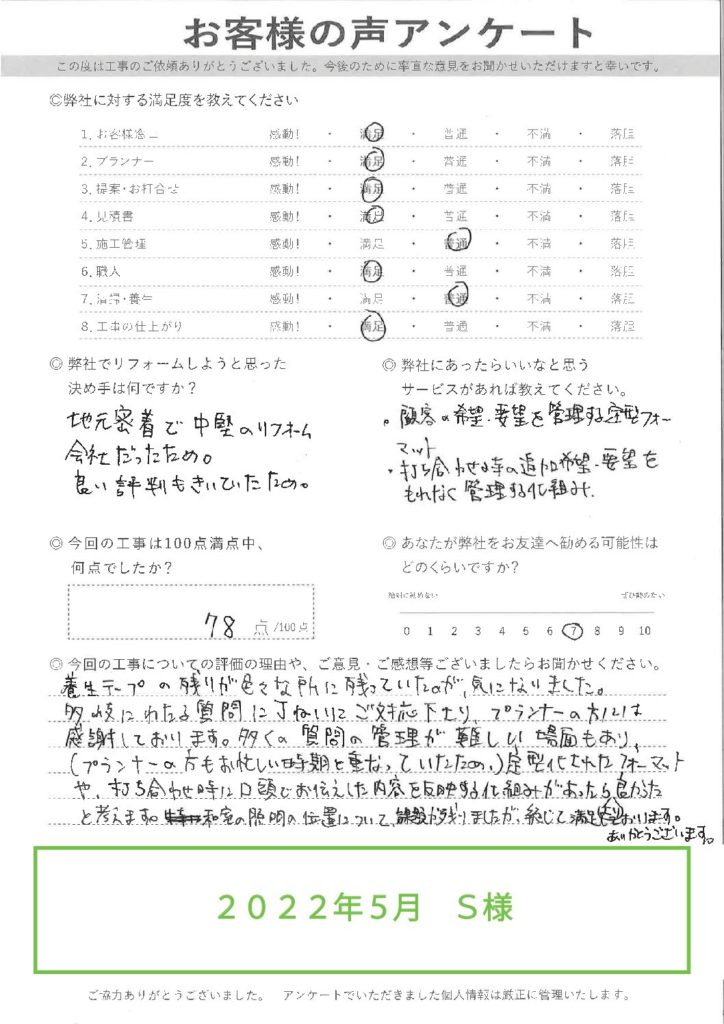 お客様の声アンケート
この度は工事のご依頼ありがとうございました。今後のために率直な意見をお聞かせいただけますと幸いです。
◎弊社に対する満足度を教えてください
1. お客様窓口 感動! ・ 満足 ・ 普通 ・ 不満 ・ 落胆
2. プランナー 感動! ・ 満足 ・ 普通 ・ 不満 ・ 落胆
3. 提案・お打合せ 感動! ・ 満足 ・ 普通 ・ 不満 ・ 落胆
4. 見積書 感動! ・ 満足 ・ 普通 ・ 不満 ・ 落胆
5. 施工管理 感動! ・ 満足 ・ 普通 ・ 不満 ・ 落胆
6. 職人 感動! ・ 満足 ・ 普通 ・ 不満 ・ 落胆
7. 清掃・養生 感動! ・ 満足 ・ 普通 ・ 不満 ・ 落胆
8. 工事の仕上がり 感動! ・ 満足 ・ 普通 ・ 不満 ・ 落胆
◎ 弊社でリフォームしようと思った
決め手は何ですか?
地元密着で中堅のリフォーム
会社だったため。
良い評判もきいていたため。
◎ 弊社にあったらいいなと思う
サービスがあれば教えてください。
・顧客の希望・要望を管理する定型フォー
マット
・打ち合わせ時の追加希望・要望を
もれなく管理する仕組み
◎ 今回の工事は100点満点中、
何点でしたか?
78 点 /100点
◎ あなたが弊社をお友達へ勧める可能性は
どのくらいですか?
絶対に勧めない ぜひ勧めたい
0 1 2 3 4 5 6 7 8 9 10
◎ 今回の工事についての評価の理由や、ご意見・ご感想等ございましたらお聞かせください。
養生テープの残りが色々な所に残っていたのが、気になりました。
多岐にわたる質問に丁ねいにご対応下さり、プランナーの方には
感謝しております。多くの質問の管理が難しい場面もあり、
(プランナーの方もお忙しい時期と重なっていたため。)定型化されたフォーマット
や、打ち合わせ時に口頭でお伝えした内容を反映する仕組みがあったら良かった
と考えます。和室の照明の位置について、課題が残りましたが、総じて満足しております。
ありがとうございます。
2022年5月 S様
ご協力ありがとうございました。 アンケートでいただきました個人情報は厳正に管理いたします。